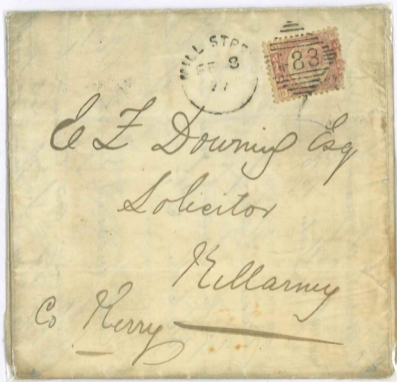 MILL STRE
FE 3
77
83
E Z Downing Esq
Solicitor
Killarney
Co Kerry